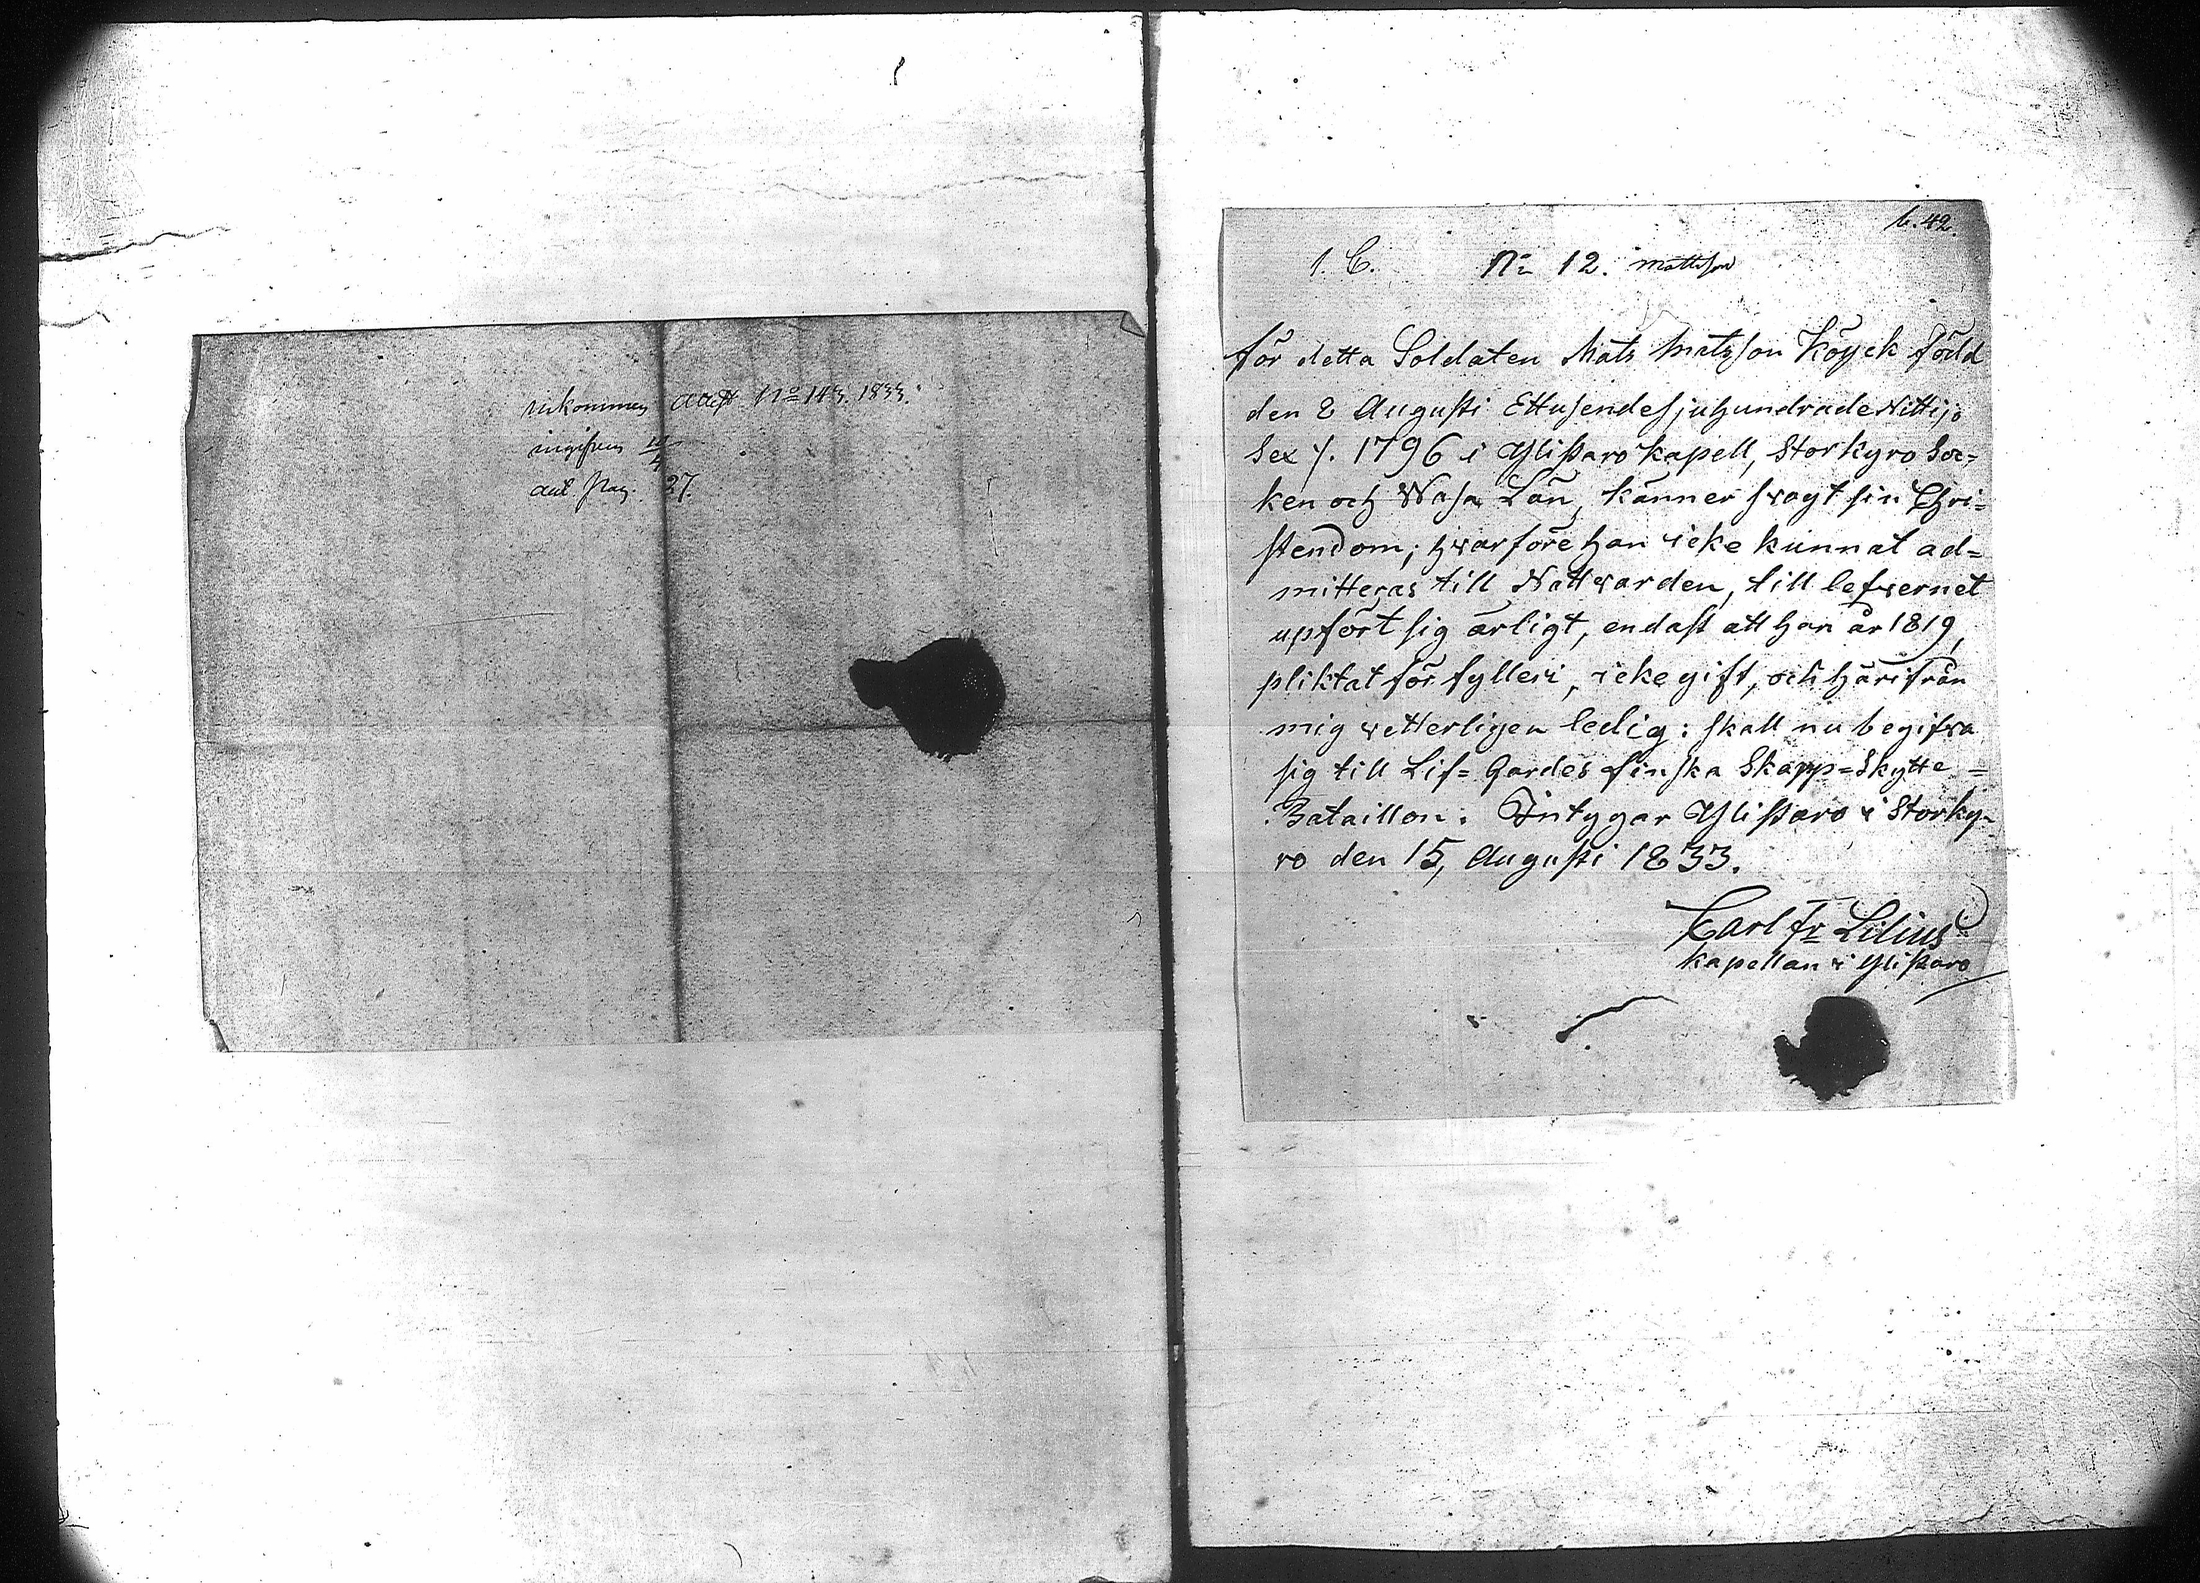 inkommen attest No 143. 1833.
ant. Pag. 27.
b. 42.
1. C. No 12. Mattsson
för detta Soldaten Mats Matsson Köyck född
den 8 Augusti EttusendesjuhundradeNittijo
Sex /. 1796 i Ylistaro kapell, Storkyro Soc=
ken och Wasa Län, känner swagt sin Chri=
stendom; hwarföre han icke kunnat ad=
mitteras till Nattwarden, till lefwernet
upfört sig ärligt, endast att han år 1819,
pliktat för fylleri, icke gift, och härifrån
mig wetterligen ledig: skall nu begifwa
sig till Lif= Gardes finska Skarp=Skytte =
Bataillon. Intygar Ylistaro i Storky=
ro den 15, Augusti 1833.
Carl Fr Lilius
kapellan i Ylistaro